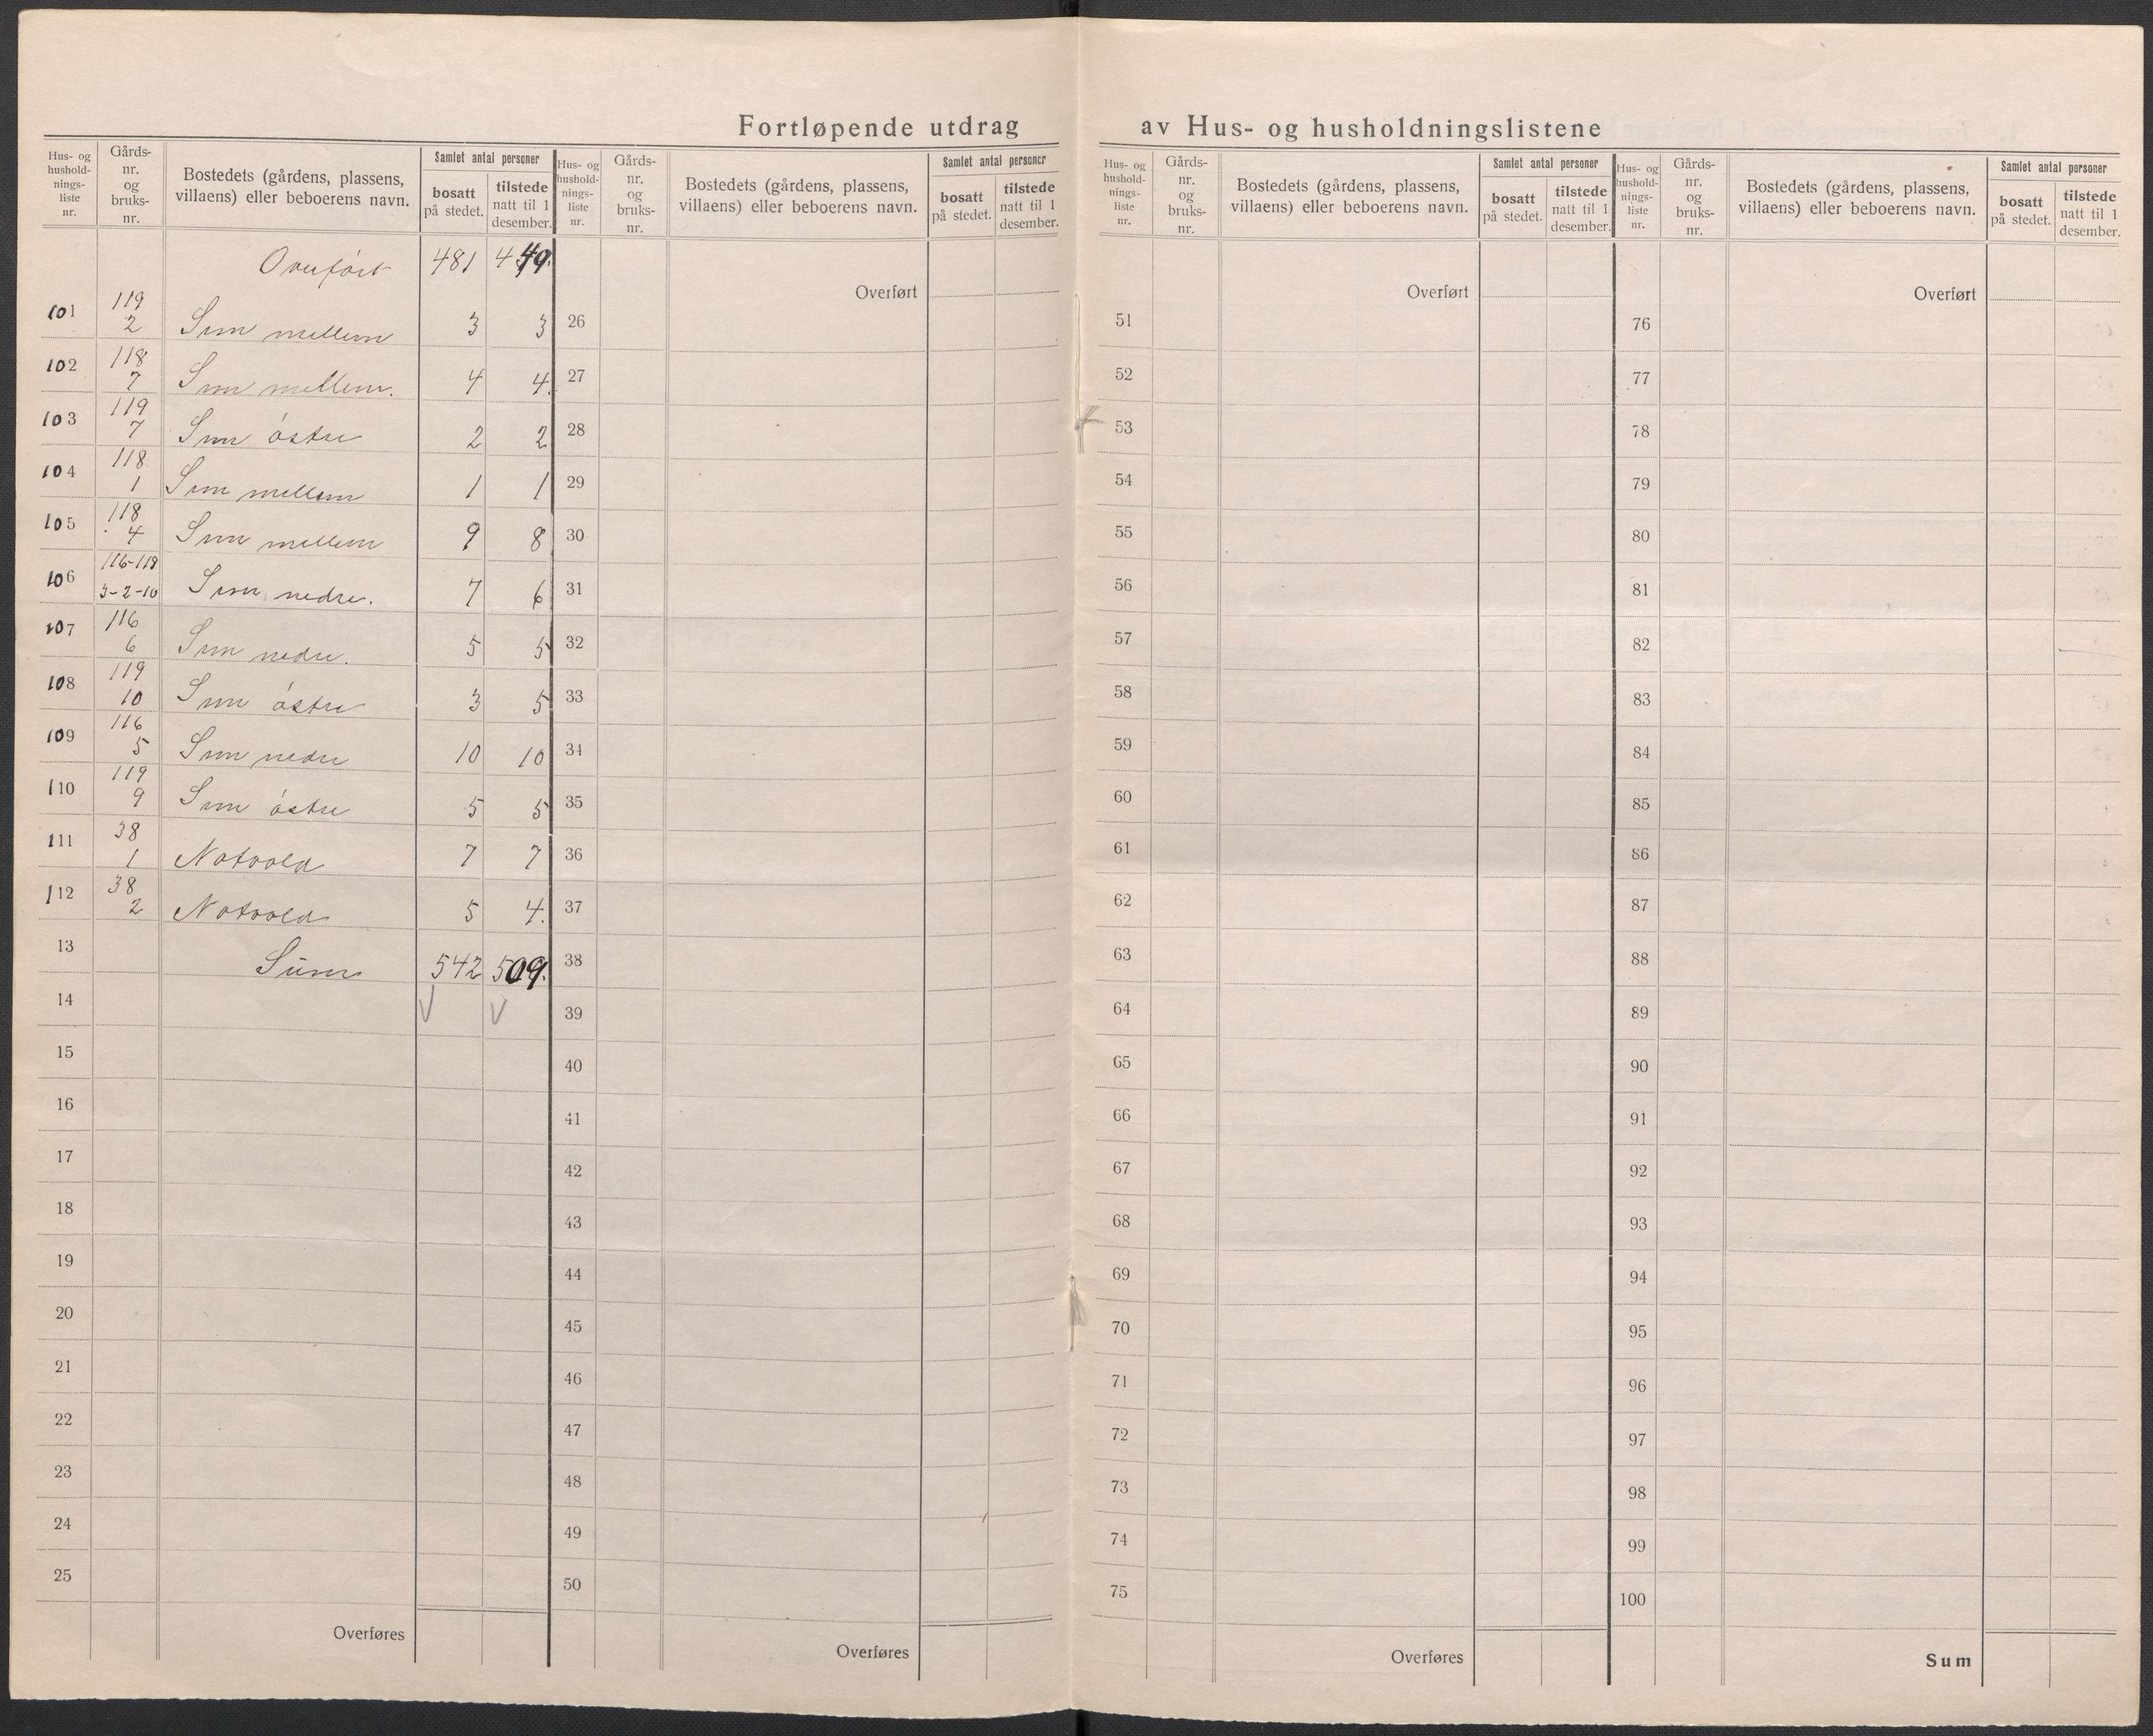 Fortløpende utdrag av Hus- og husholdningslistene
Hus- og hushold-nings-liste nr. | Gårds-nr. og bruks-nr. | Bostedets (gårdens, plassens, villaens) eller beboerens navn. | Samlet antal personer | bosatt på stedet. | tilstede natt til 1 desember.
Overført 481 449.
101 119 2 Sem mellem 3 3
102 118 7 Sem mellem. 4 4.
103 119 7 Sem östre 2 2
104 118 1 Sem mellem 1 1
105 118 4 Sem mellem 9 8
106 116-119 3-2-10 Sem nedre. 7 6
107 116 6 Sem nedre. 5 5
108 119 10 Sem östre 3 5
109 116 5 Sem nedre 10 10
110 119 9 Sem östre 5 5
111 38 1 Notvold 7 7
112 38 2 Notvold 5 4.
13 Sum 542 509.
14 V V
15
16
17
18
19
20
21
22
23
24
25
Overføres
Hus- og hushold-nings-liste nr. | Gårds-nr. og bruks-nr. | Bostedets (gårdens, plassens, villaens) eller beboerens navn. | Samlet antal personer | bosatt på stedet. | tilstede natt til 1 desember.
Overført
26
27
28
29
30
31
32
33
34
35
36
37
38
39
40
41
42
43
44
45
46
47
48
49
50
Overføres
Hus- og hushold-nings-liste nr. | Gårds-nr. og bruks-nr. | Bostedets (gårdens, plassens, villaens) eller beboerens navn. | Samlet antal personer | bosatt på stedet. | tilstede natt til 1 desember.
Overført
51
52
53
54
55
56
57
58
59
60
61
62
63
64
65
66
67
68
69
70
71
72
73
74
75
Overføres
Hus- og hushold-nings-liste nr. | Gårds-nr. og bruks-nr. | Bostedets (gårdens, plassens, villaens) eller beboerens navn. | Samlet antal personer | bosatt på stedet. | tilstede natt til 1 desember.
Overført
76
77
78
79
80
81
82
83
84
85
86
87
88
89
90
91
92
93
94
95
96
97
98
99
100
Sum